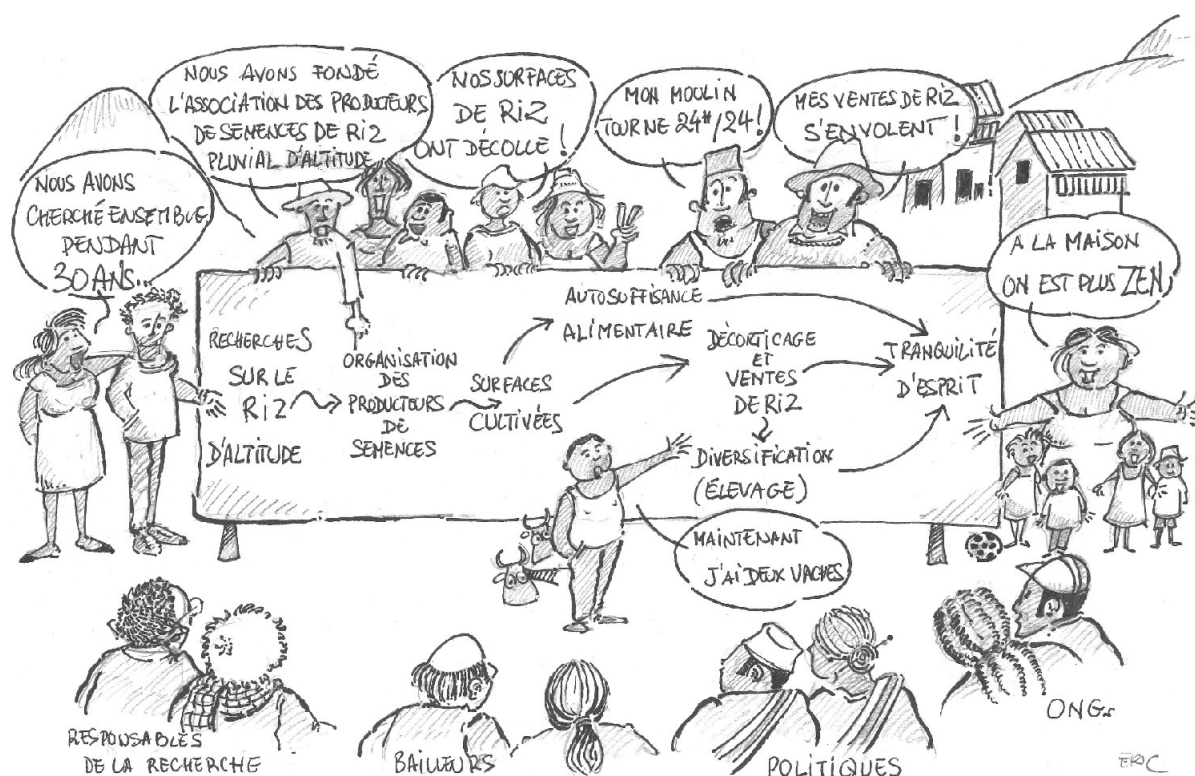 NOUS AVONS FONDÉ
L'ASSOCIATION DES PRODUCTEURS
DE SEMENCES DE RIZ
PLUVIAL D'ALTITUDE
NOS SURFACES
DE RIZ
ONT DÉCOLLÉ !
MON MOULIN
TOURNE 24H/24 !
MES VENTES DE RIZ
S'ENVOLENT !
NOUS AVONS
CHERCHÉ ENSEMBLE
PENDANT
30 ANS...
A LA MAISON
ON EST PLUS ZEN
RECHERCHES
SUR LE
RIZ
D'ALTITUDE
ORGANISATION
DES
PRODUCTEURS
DE
SEMENCES
SURFACES
CULTIVÉES
AUTOSUFFISANCE
ALIMENTAIRE
DÉCORTICAGE
ET
VENTES
DE RIZ
DIVERSIFICATION
(ÉLEVAGE)
TRANQUILITÉ
D'ESPRIT
MAINTENANT
J'AI DEUX VACHES
RESPONSABLES
DE LA RECHERCHE
BAILLEURS
POLITIQUES
ONGs